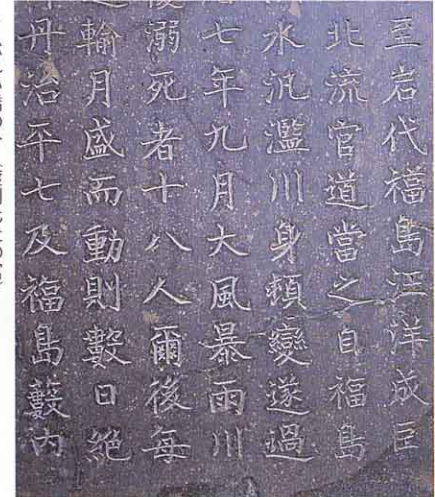 至岩代福島汪洋成巨
北流官道當之自福島
水汎濫川身頓變遂過
七年九月大風暴雨川
溺死者十八人爾後每
輪月盛而動則數日絶
丹治平七及福島藪内